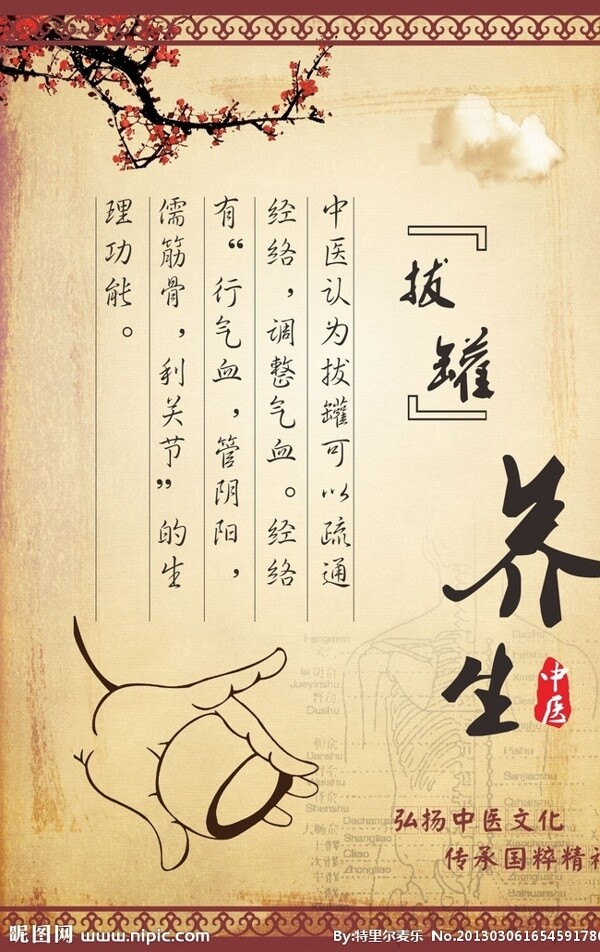 『拔罐』
养生
中医
中医认为拔罐可以疏通
经络，调整气血。经络
有“行气血，管阴阳，
儒筋骨，利关节”的生
理功能。
Jueyinshu
Dushu
Danshu
Shenshu
Dachangshu
Shangliao
Ciliao
Zhongliao
Pishu
Sanjiaoshu
弘扬中医文化
传承国粹精神
昵图网 www.nipic.com
By:特里尔麦乐 No.201303061654591780